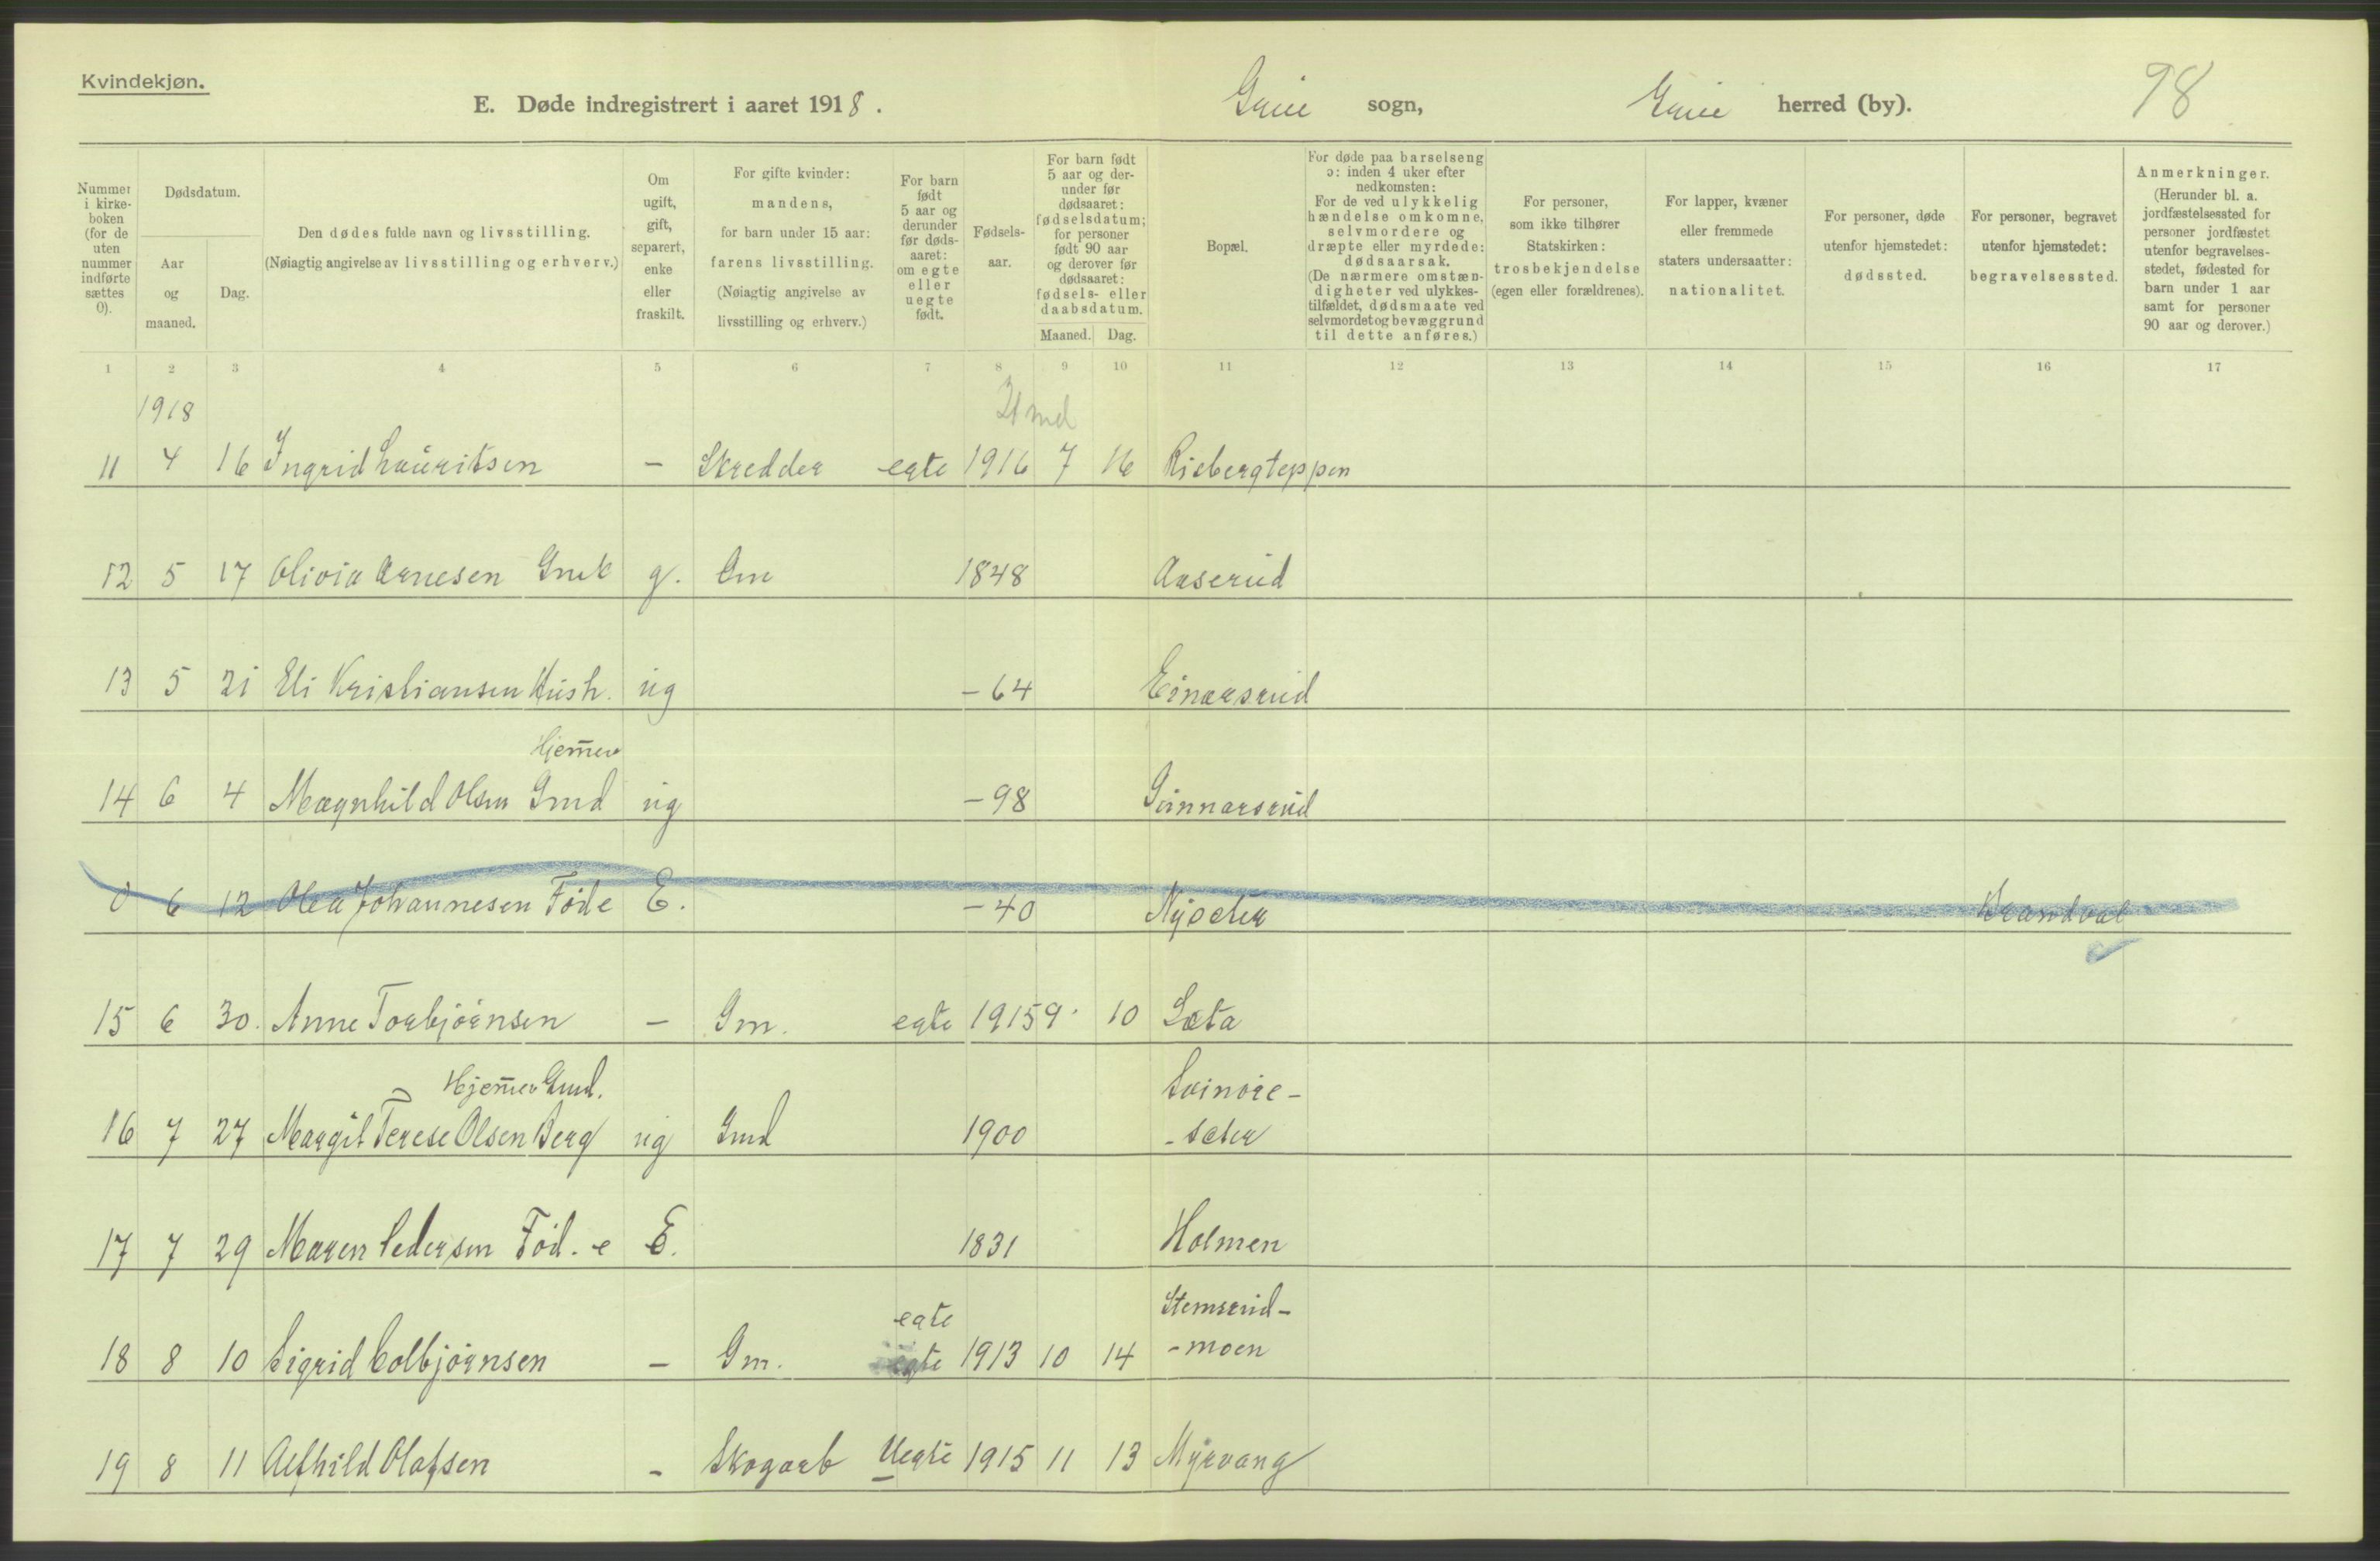 Kvindekjøn.
E. Døde indregistrert i aaret 1918.
Grue sogn,
Grue herred (by).
98
Nummer i kirke-boken (for de uten nummer indførte sættes 0).
Dødsdatum.
Aar og maaned.
Dag.
Den dødes fulde navn og livsstilling.
(Nøiagtig angivelse av livsstilling og erhverv.)
Om ugift, gift, separert, enke eller fraskilt.
For gifte kvinder: mandens, for barn under 15 aar: farens livsstilling. (Nøiagtig angivelse av livsstilling og erhverv.)
For barn født 5 aar og derunder før døds-aaret: om egte eller uegte født.
Fødsels-aar.
For barn født 5 aar og der-under før dødsaaret: fødselsdatum; for personer født 90 aar og derover før dødsaaret: fødsels- eller daabsdatum.
Maaned. Dag.
Bopæl.
For døde paa barselseng ɔ: inden 4 uker efter nedkomsten: For de ved ulykkelig hændelse omkomne, selvmordere og dræpte eller myrdede: dødsaarsak. (De nærmere omstæn-digheter ved ulykkes-tilfældet, dødsmaate ved selvmordet og bevæggrund til dette anføres.)
For personer, som ikke tilhører Statskirken: trosbekjendelse (egen eller forældrenes).
For lapper, kvæner eller fremmede staters undersaatter: nationalitet.
For personer, døde utenfor hjemstedet: dødssted.
For personer, begravet utenfor hjemstedet: begravelsessted.
Anmerkninger. (Herunder bl. a. jordfæstelsessted for personer jordfæstet utenfor begravelses-stedet, fødested for barn under 1 aar samt for personer 90 aar og derover.)
1 2 3 4 5 6 7 8 9 10 11 12 13 14 15 16 17
1918
21 md
11 4 16 Ingrid Lauritsen – Skredder egte 1916 7 16 Risbergteppen
12 5 17 Olivia Arnesen Gmk g. Gm 1848 Aaserud
13 5 21 Eli Kristiansen Hush. ug – 64 Einarsrud
Hjemev
14 6 4 Magnhild Olsen Gmd ug – 98 Gunnarsrud
0 6 12 Olea Johannesen Föde E. – 40 Nysæter Brandval
15 6 30. Anne Torbjörnsen – Gm. egte 1915 9 10 Sæta
Hjemev Gmd. Svinöie-
16 7 27 Margit Terese Olsen Berg ug Gmd 1900 -sæter
17 7 29 Maren Pedersen Föd. e E. 1831 Holmen
egte Stemsrud-
18 8 10 Sigrid Colbjörnsen – Gm. egte 1913 10 14 -moen
19 8 11 Alfhild Olafsen – Skogarb Uegte 1915 11 13 Myrvang